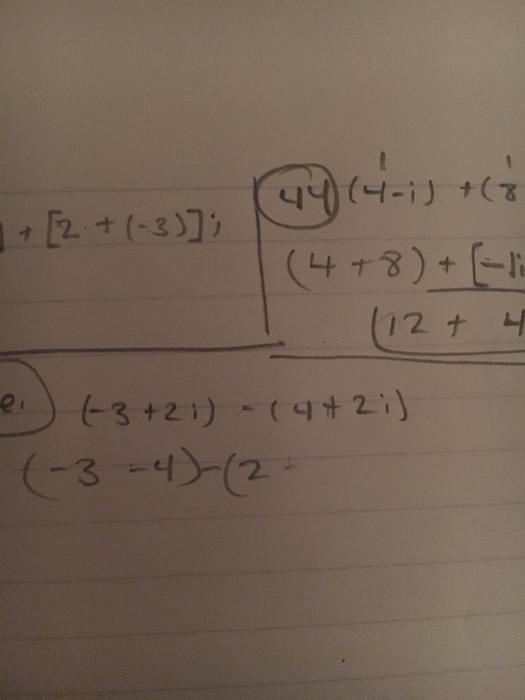 ] + [2 + (-3)]i
44 (4-i) + (8
(4 + 8) + [-1i
(12 + 4
e. (-3 + 2i) - (4 + 2i)
(-3 - 4) - (2 -